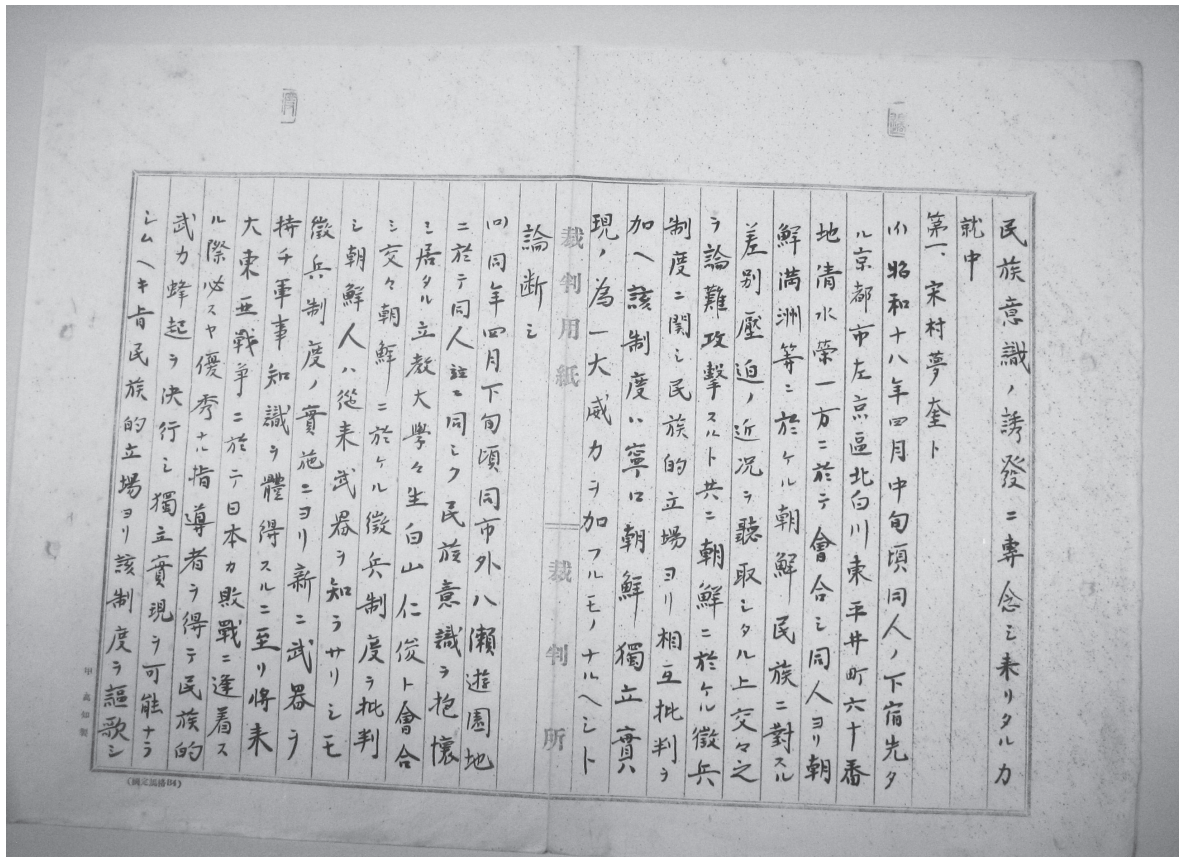 民族意識ノ誘發ニ專念シ来リタルカ
就中
第一、宋村夢奎ト
(イ)昭和十八年四月中旬頃同人ノ下宿先タ
ル京都市左京區北白川東平井町六十番
地清水榮一方ニ於テ會合シ同人ヨリ朝
鮮満洲等ニ於ケル朝鮮民族ニ對スル
差别壓迫ノ近況ヲ聽取シタル上交々之
ヲ論難攻撃スルト共ニ朝鮮ニ於ケル徴兵
制度ニ関シ民族的立場ヨリ相互批判ヲ
加ヘ該制度ハ寧ロ朝鮮獨立實
現ノ為一大威力ヲ加フルモノナルヘシト
論断シ
裁判用紙
裁判所
(ロ)同年四月下旬頃同市外八瀬遊園地
ニ於テ同人並ニ同シク民族意識ヲ抱懷
シ居タル立教大學々生白山仁俊ト會合
シ交々朝鮮ニ於ケル徴兵制度ヲ批判
シ朝鮮人ハ從来武器ヲ知ラサリシモ
徴兵制度ノ實施ニヨリ新ニ武器ヲ
持チ軍事知識ヲ體得スルニ至リ將来
大東亜戰争ニ於テ日本カ敗戰ニ逢着ス
ル際必スヤ優秀ナル指導者ヲ得テ民族的
武力蜂起ヲ決行シ獨立實現ヲ可能ナラ
シムヘキ旨民族的立場ヨリ該制度ヲ謳歌シ
(橫文規格B4)